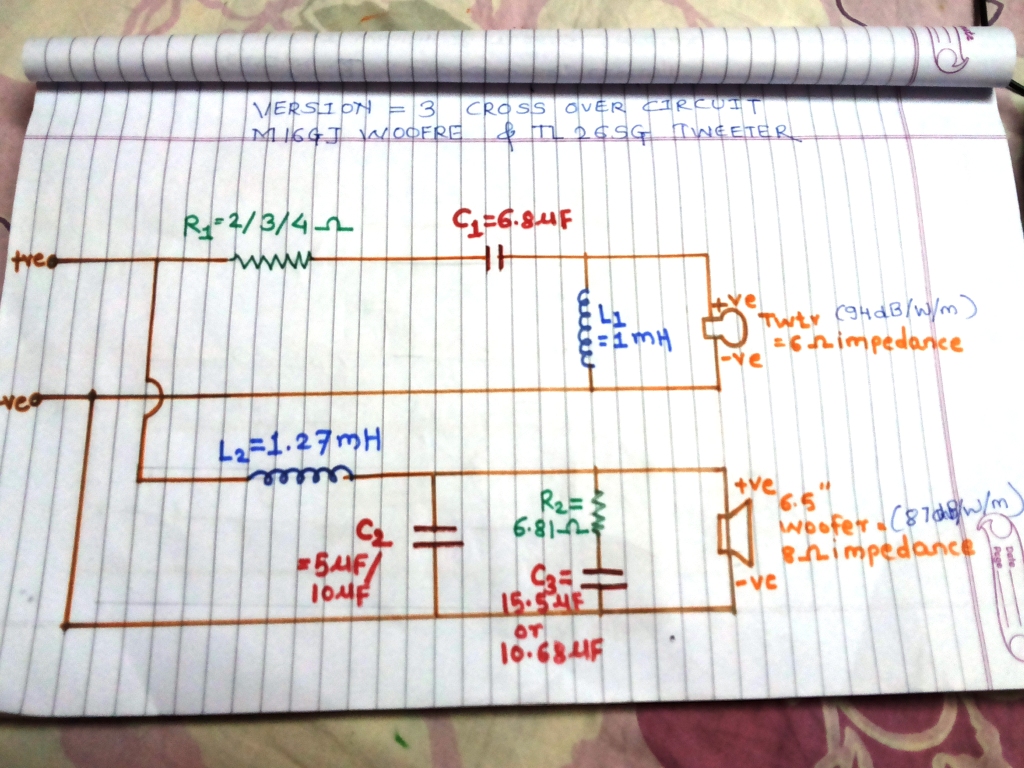 VERSION = 3 CROSS OVER CIRCUIT
M16GJ WOOFRE & TL26SG TWEETER
R1=2/3/4 Ω
C1=6.8µF
+ve
L1
=1mH
+ve
Twtr (94dB/W/m)
=6Ω impedance
-ve
-ve
L2=1.27mH
C2
=5µF/
10µF
R2=
6.81Ω
C3=
15.5µF
or
10.68µF
+ve
6.5"
woofer. (87dB/W/m)
8Ω impedance
-ve
Date
Page